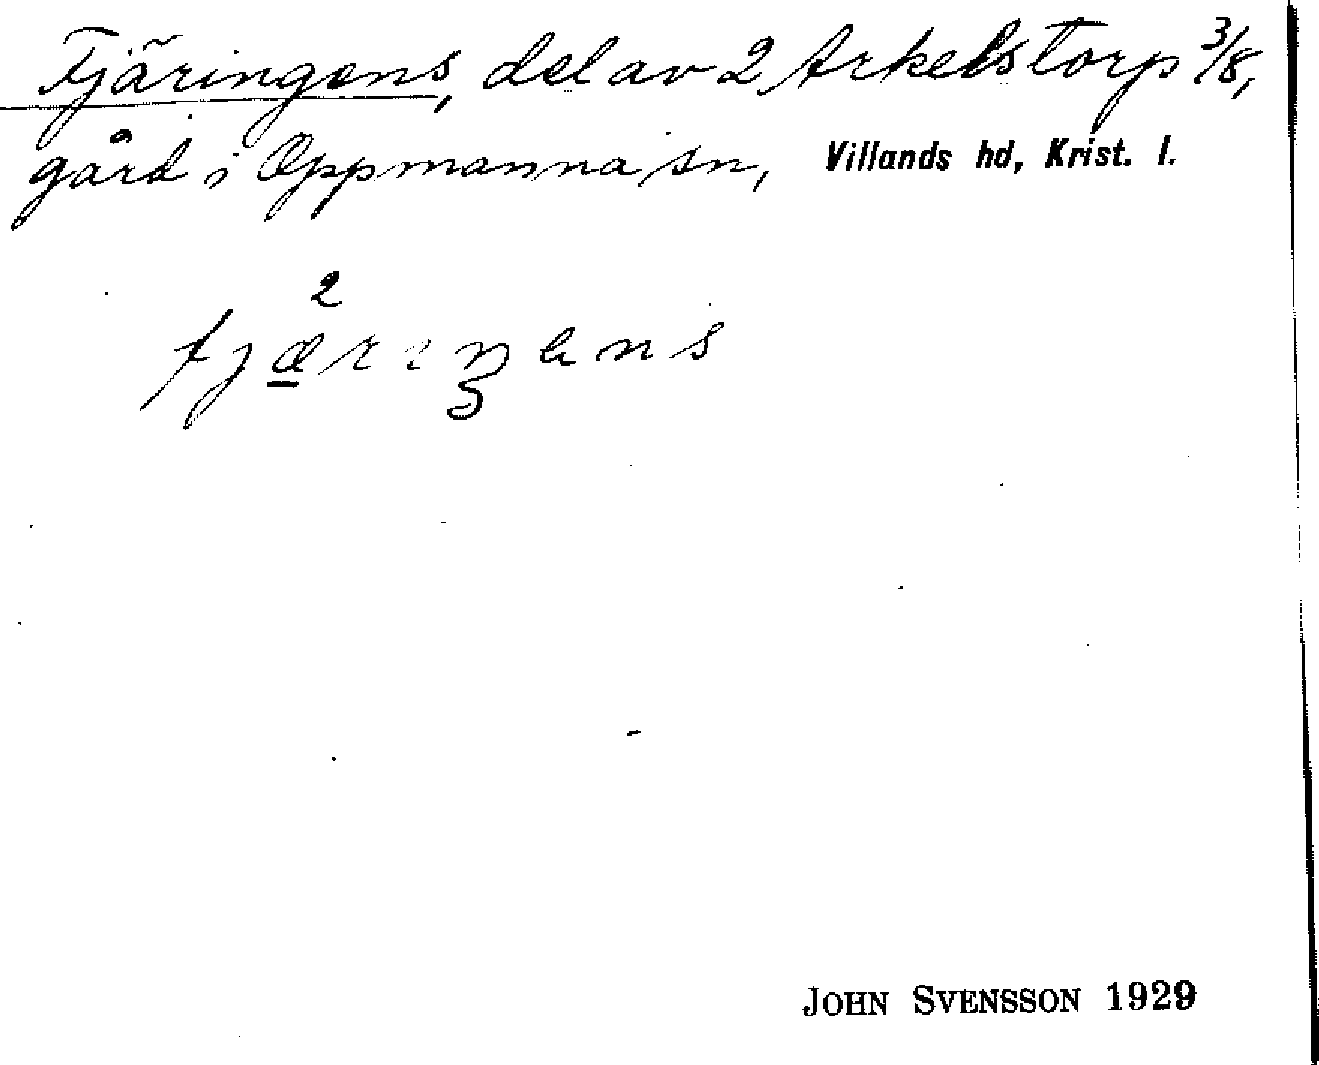 Fjäringens, del av 2 Arkelstorp 3/8,
gård i Oppmanna sn, Villands hd, Krist. l.
2
fjæriŋens
JOHN SVENSSON 1929